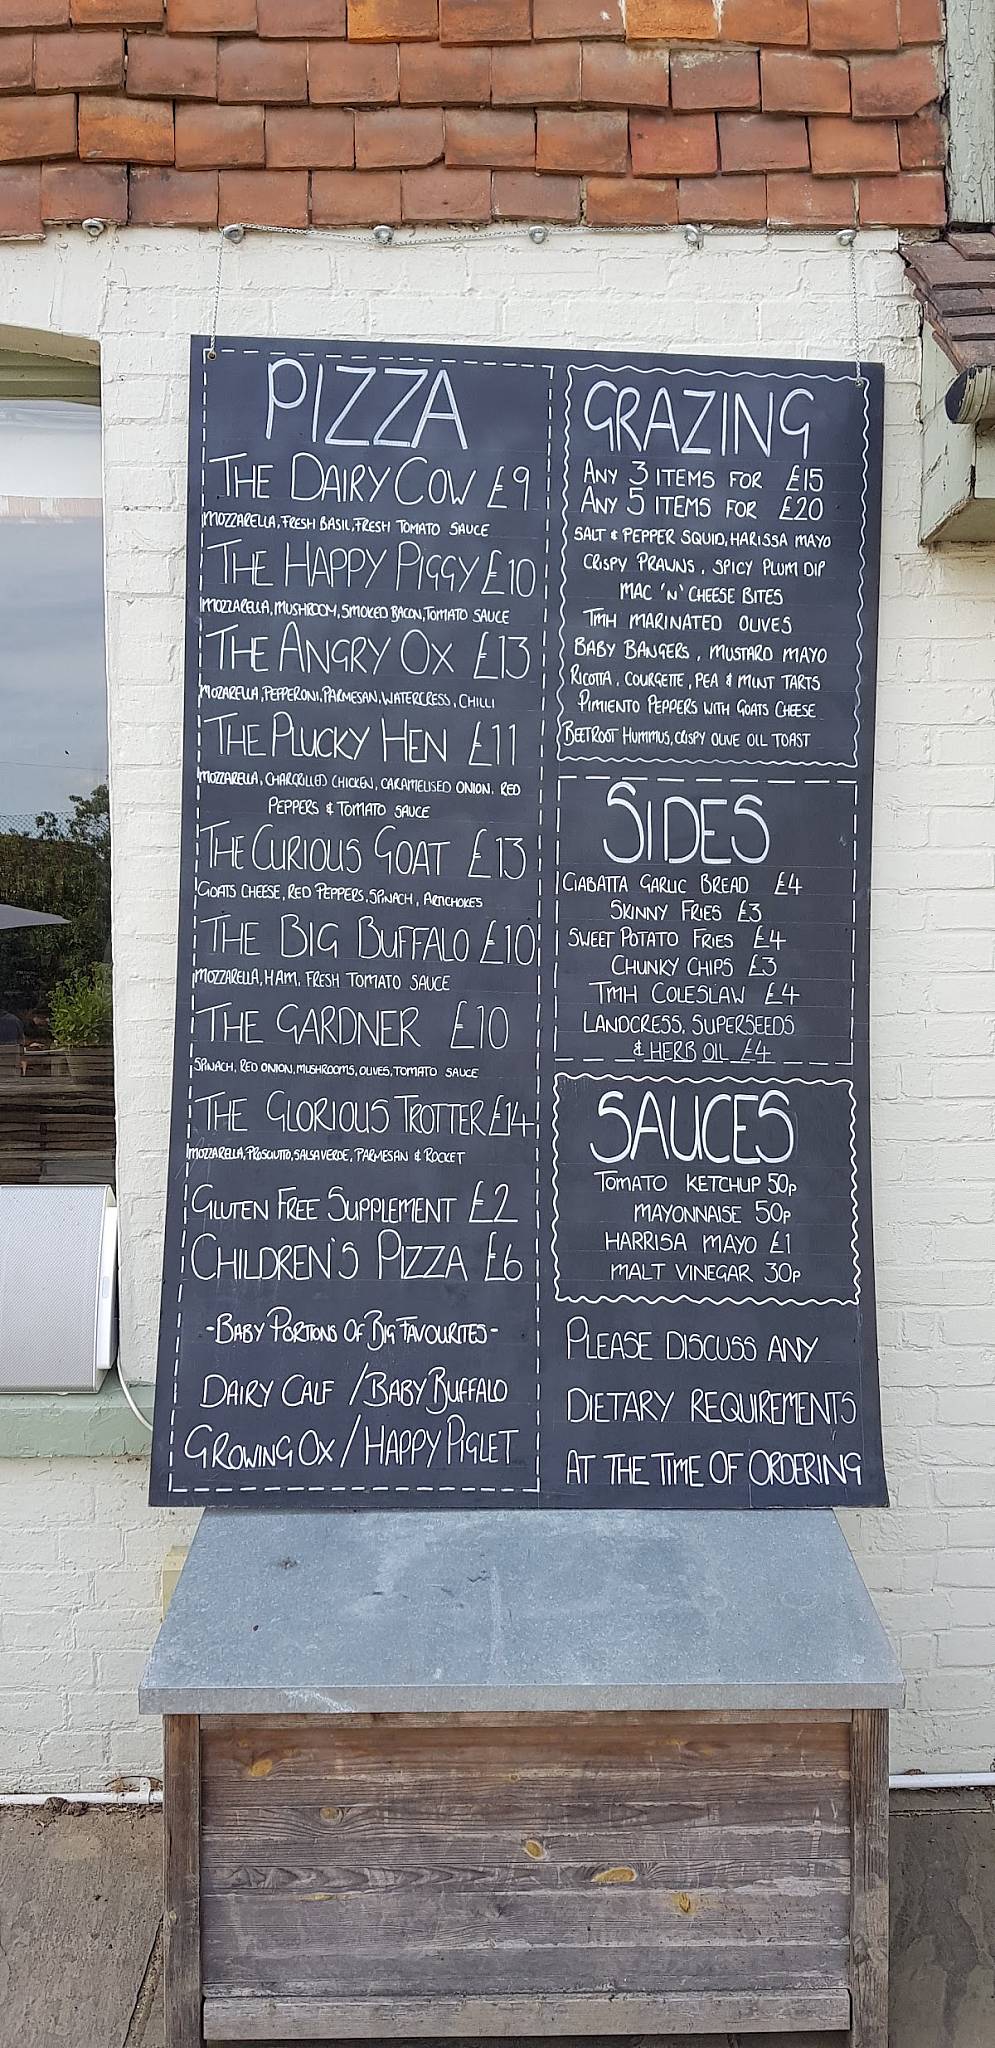 PIZZA
THE DAIRY COW £9
MOZZARELLA, FRESH BASIL, FRESH TOMATO SAUCE
THE HAPPY PIGGY £10
MOZZARELLA, MUSHROOM, SMOKED BACON, TOMATO SAUCE
THE ANGRY OX £13
MOZARELLA, PEPPERONI, PARMESAN, WATERCRESS, CHILLI
THE PLUCKY HEN £11
MOZZARELLA, CHARGRILLED CHICKEN, CARAMELISED ONION, RED
PEPPERS & TOMATO SAUCE
THE CURIOUS GOAT £13
GOATS CHEESE, RED PEPPERS, SPINACH, ARTICHOKES
THE BIG BUFFALO £10
MOZZARELLA, HAM, FRESH TOMATO SAUCE
THE GARDNER £10
SPINACH, RED ONION, MUSHROOMS, OLIVES, TOMATO SAUCE
THE GLORIOUS TROTTER £14
MOZZARELLA, PROSCIUTTO, SALSA VERDE, PARMESAN & ROCKET
GLUTEN FREE SUPPLEMENT £2
CHILDREN'S PIZZA £6
-BABY PORTIONS OF BIG FAVOURITES-
DAIRY CALF / BABY BUFFALO
GROWING OX / HAPPY PIGLET
GRAZING
ANY 3 ITEMS FOR £15
ANY 5 ITEMS FOR £20
SALT & PEPPER SQUID, HARISSA MAYO
CRISPY PRAWNS, SPICY PLUM DIP
MAC 'N' CHEESE BITES
TMH MARINATED OLIVES
BABY BANGERS, MUSTARD MAYO
RICOTTA, COURGETTE, PEA & MINT TARTS
PIMIENTO PEPPERS WITH GOATS CHEESE
BEETROOT HUMMUS, CRISPY OLIVE OIL TOAST
SIDES
CIABATTA GARLIC BREAD £4
SKINNY FRIES £3
SWEET POTATO FRIES £4
CHUNKY CHIPS £3
TMH COLESLAW £4
LANDCRESS, SUPERSEEDS
& HERB OIL £4
SAUCES
TOMATO KETCHUP 50p
MAYONNAISE 50p
HARRISA MAYO £1
MALT VINEGAR 30p
PLEASE DISCUSS ANY
DIETARY REQUIREMENTS
AT THE TIME OF ORDERING